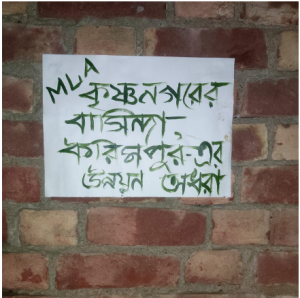 MLA
কৃষ্ণনগরের
বাসিন্দা,
করিমপুর-এর
উন্নয়ন অধরা